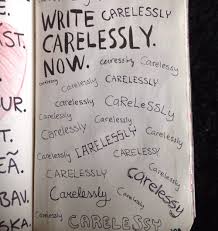 WRITE CARELESSLY
CARELESSLY.
NOW. Carelessly
carelessly CARELESSLY
Carelessly Carelessly
Carelessly CaReLeSSLy
Carelessly Carelessly
Carelessly Carelessly
CARELESSLY Carelessly
Carelessly CARELESSLY.
CARELESSLY Carelessly
Carelessly Carelessly carelessly
CARELESSLY
ST.
UR.
EÃ
BAV.
SKA.